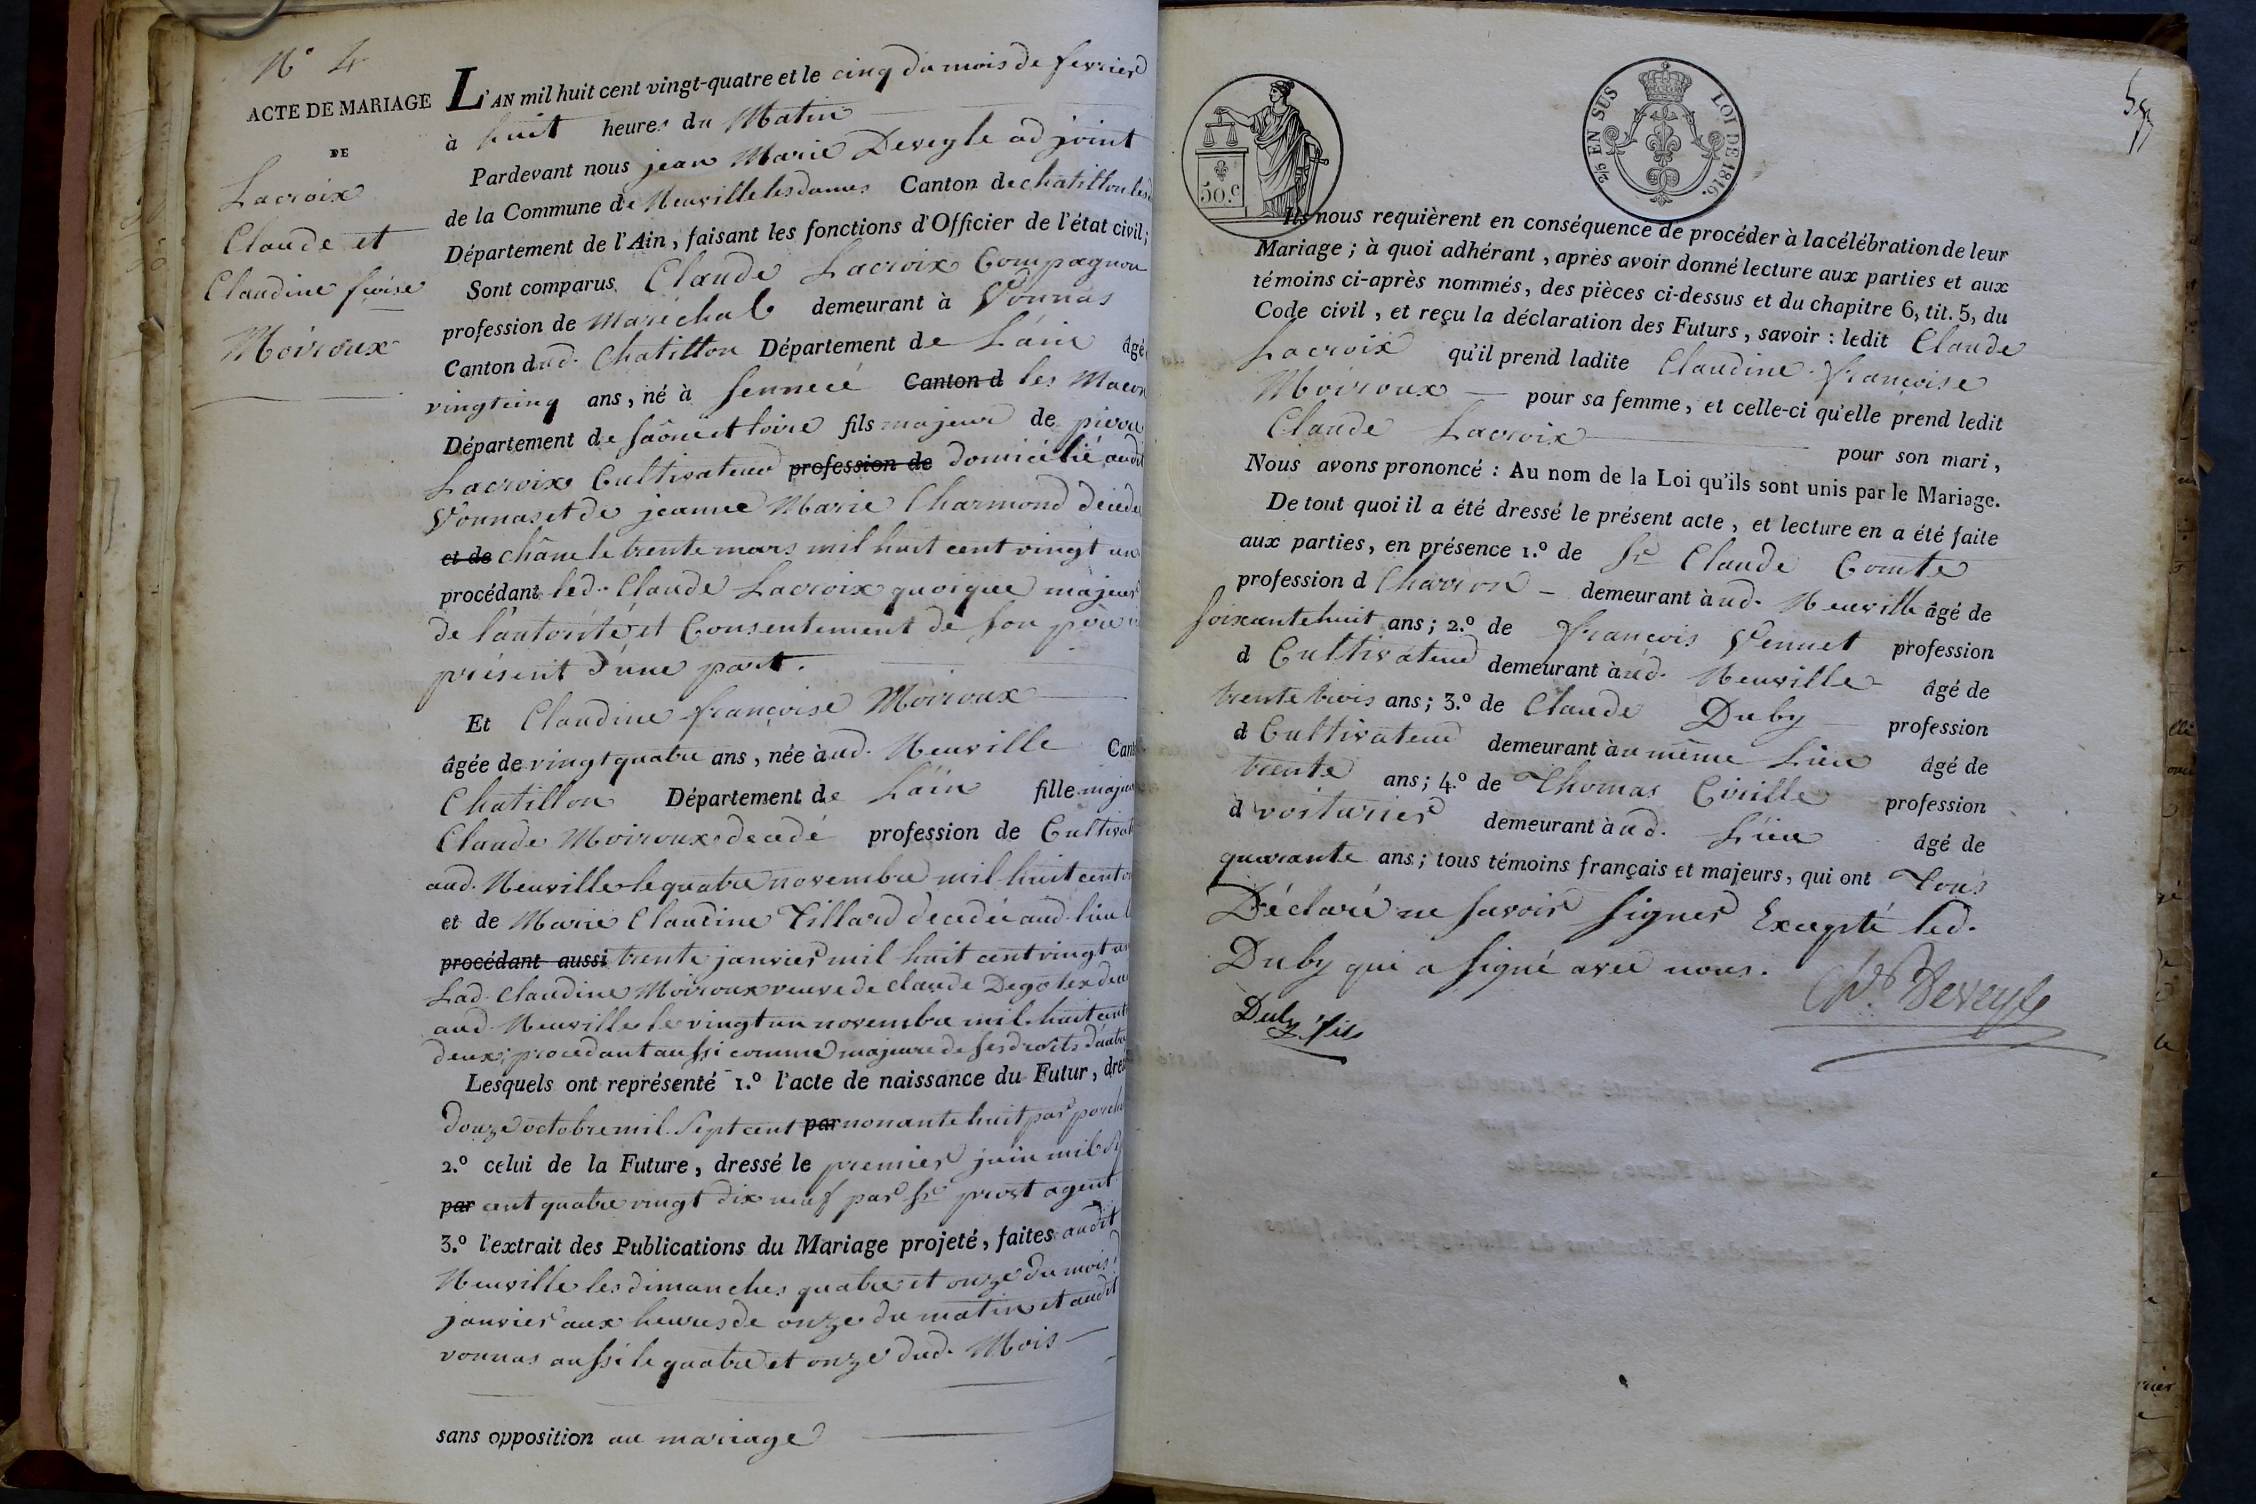 N° 4
ACTE DE MARIAGE
DE
Lacroix
Claude et
Claudine fcoise
Moiroux
L'AN mil huit cent vingt-quatre et le cinq du mois de fevrier
à huit heures du Matin
Pardevant nous jean Marie Deveyle adjoint
de la Commune de Neuville les dames Canton de chatillon les
Département de l'Ain, faisant les fonctions d'Officier de l'état civil;
Sont comparus Claude Lacroix Compagnon
profession de Maréchal demeurant à Vonnas
Canton dud. Chatillon Département de L'ain âgé
vingt cinq ans, né à Sennecé Canton d les Macon
Département de Saône et loire fils majeur de pierre
Lacroix Cultivateur profession de domicilié audit
Vonnas et de jeanne Marie Charmond décédé
et de châne le trente mars mil huit cent vingt un
procédant led. Claude Lacroix quoique majeur
de l'autorité et Consentement de son père
présent d'une part.
Et Claudine françoise Moiroux
âgée de vingt quatre ans, née à ud. Neuville Cant
Chatillon Département de L'ain fille majeu
Claude Moiroux decedé profession de Cultivat
aud. Neuville le quatre novembre mil huit cent
et de Marie Claudine Tillard decedée aud. lieu
procédant aussi trente janvier mil huit cent vingt un
Lad. Claudine Moiroux veuve de claude Degotex
aud. Neuville le vingt un novembre mil huit cent
deux; procedant aussi comme majeure de ses droits d'autre
Lesquels ont représenté 1.° l'acte de naissance du Futur, dres
douze octobre mil Sept cent par nonante huit par
2.° celui de la Future, dressé le premier juin mil
par cent quatre vingt dix neuf par Sr prost agent
3.° l'extrait des Publications du Mariage projeté, faites audit
Neuville les dimanches quatre et onze du mois
janvier aux heures de onze du matin et audit
vonnas aussi le quatre et onze dud. Mois
sans opposition au mariage
50 c.
2/5 EN SUS LOI DE 1816.
Ils nous requièrent en conséquence de procéder à la célébration de leur
Mariage; à quoi adhérant, après avoir donné lecture aux parties et aux
témoins ci-après nommés, des pièces ci-dessus et du chapitre 6, tit. 5, du
Code civil, et reçu la déclaration des Futurs, savoir: ledit Claude
Lacroix qu'il prend ladite Claudine françoise
Moiroux pour sa femme, et celle-ci qu'elle prend ledit
Claude Lacroix pour son mari,
Nous avons prononcé: Au nom de la Loi qu'ils sont unis par le Mariage.
De tout quoi il a été dressé le présent acte, et lecture en a été faite
aux parties, en présence 1.° de Sr Claude Comte
profession d Charron demeurant à ud. Neuville âgé de
soixante huit ans; 2.° de françois Vennet profession
d Cultivateur demeurant à ud. Neuville âgé de
trente trois ans; 3.° de Claude Duby profession
d Cultivateur demeurant àu même Lieu âgé de
trente ans; 4.° de Thomas profession
d voiturier demeurant à ud. Lieu âgé de
quarante ans; tous témoins français et majeurs, qui ont Tous
Déclaré ne savoir signer Excepté led.
Duby qui a signé avec nous.
Deveyle
Duby fils